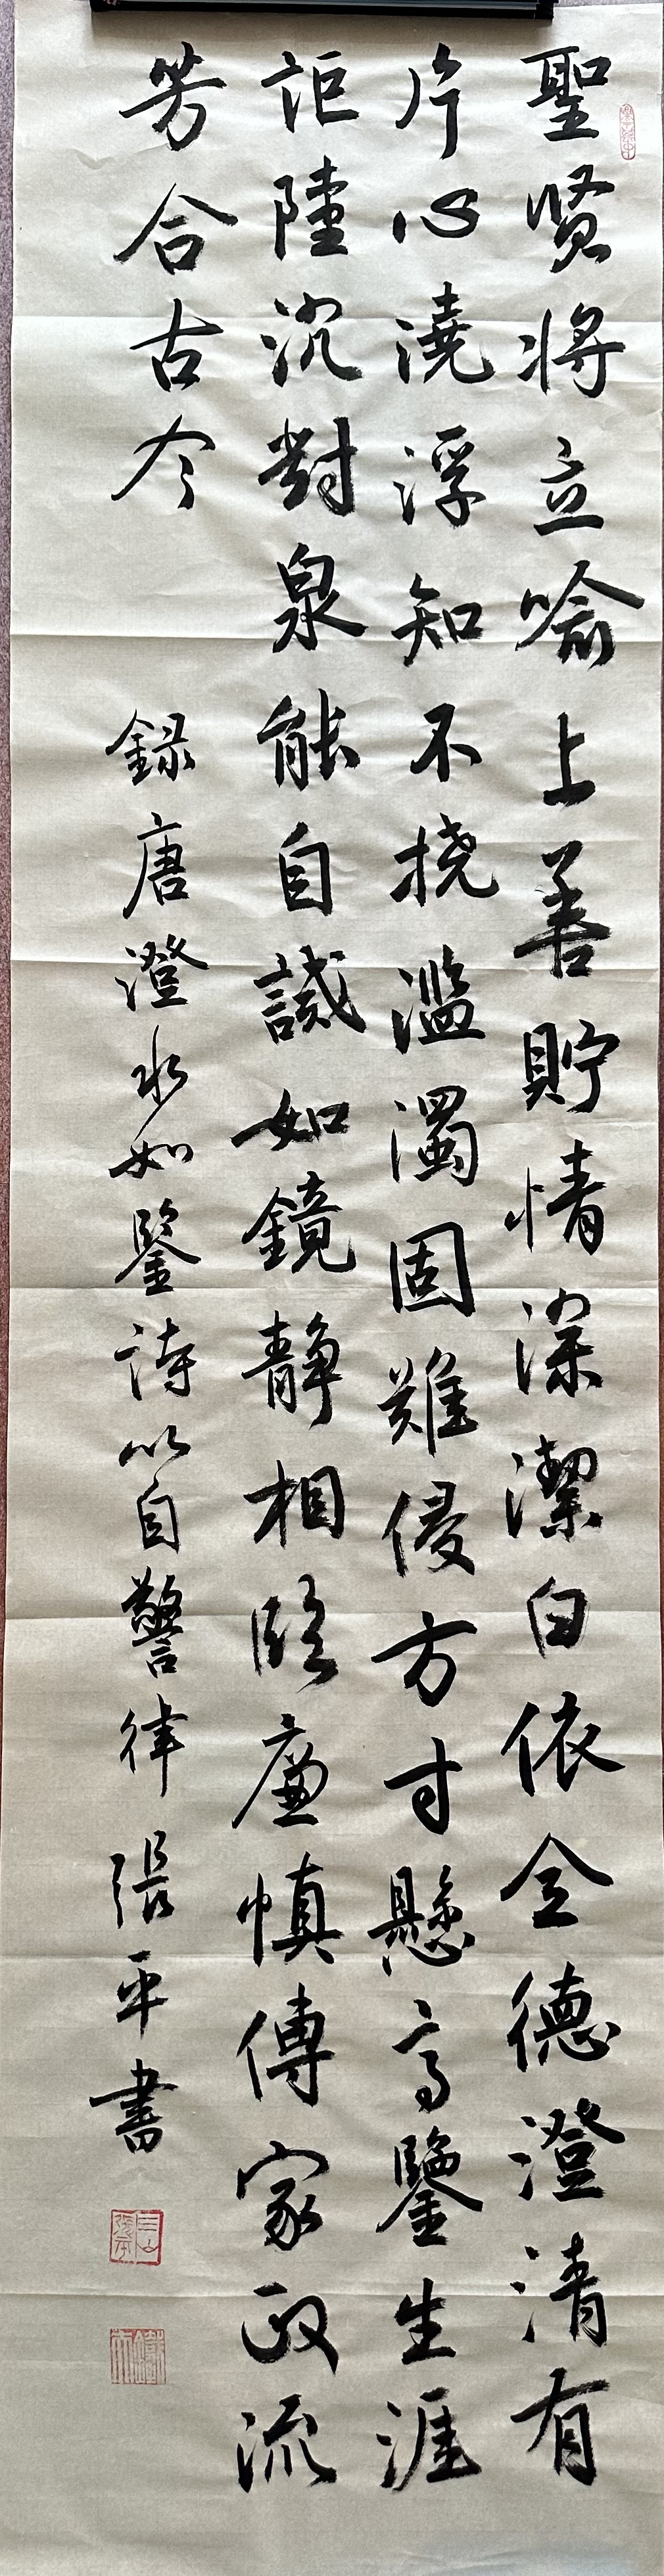 聖賢將立喻上善貯情深潔白依全德澄清有
片心澆浮知不撓濫濁固難侵方寸懸高鑒生涯
詎陸沉對泉能自誡如鏡靜相臨廉慎傳家政流
芳合古今
録唐澄水如鑒詩以自警律張平書